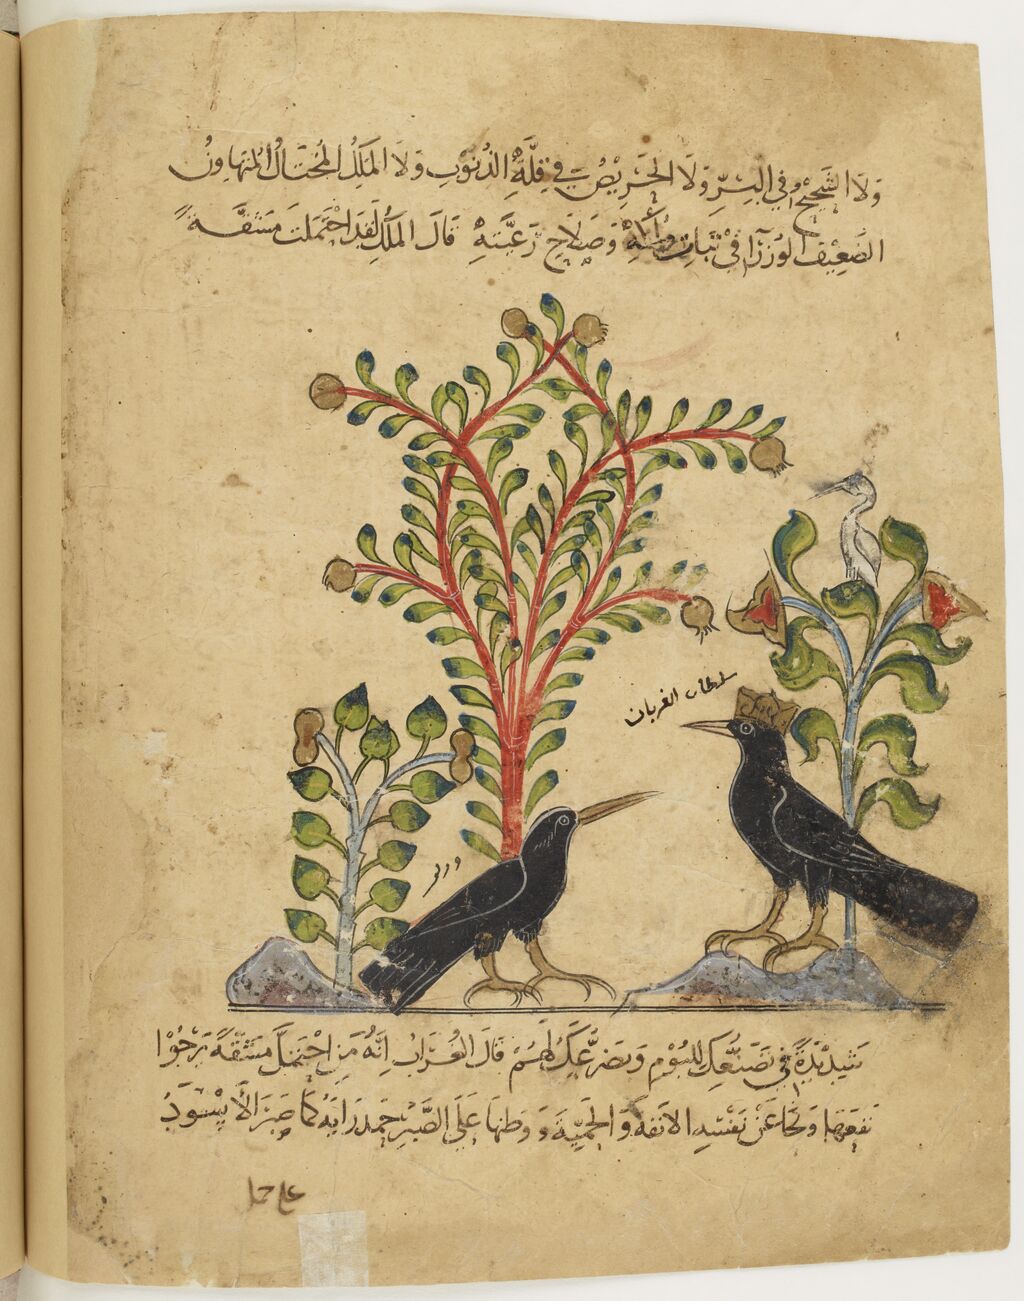 وَلَا الشَّحِيْحُ فِي البِرِّ وَلَا الحَرِيْصُ فِي قِلَّةِ الذُنوُبِ وَلَا المَلِكُ المُحْتَالُ المُتَهَاوِنُ
الضَعِيْفِ الوُزَرَآ فِي ثَبَاتِ مُلْكِهِ وَصَلَاحِ رَعِيَّتِهِ قَالَ المَلِكُ لَقَدِ احْتَمَلْتَ مَشَقَّةً
سلطان الغربان
وزير
شَدِيْدَةً فِي تَصَنُّعِكَ لِلبُوْمِ وَتَضَرُّعِكَ لَهُمْ قَالَ الغُرَابُ اِنَّهُ مَنِ احْتَمَلَ مَشَقَّةً يَرْجُوْا
نَفْعَهَا وَنَحَّا عَنْ نَفْسِهِ الانَفَةَ وَالحَمِيَّةَ وَوَطَّنَهَا عَلَى الصَّبْرِ حَمِدَ رَايَهُ كَمَا صَبَرَ الأَسْوَدُ
على حمل